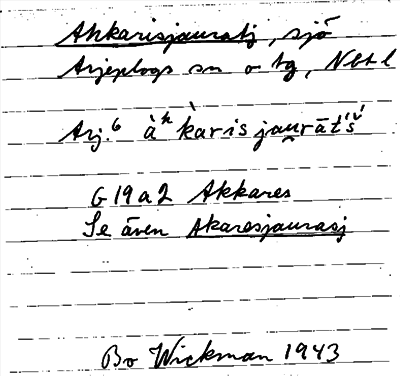 Ahkarisjauratj, sjö
Arjeplogs sn o tg, Nbtl
Arj.⁶ àʰkàrisjau̯rātś
G19a2 Akkares
Se även Akaresjaurasj
Bo Wickman 1943